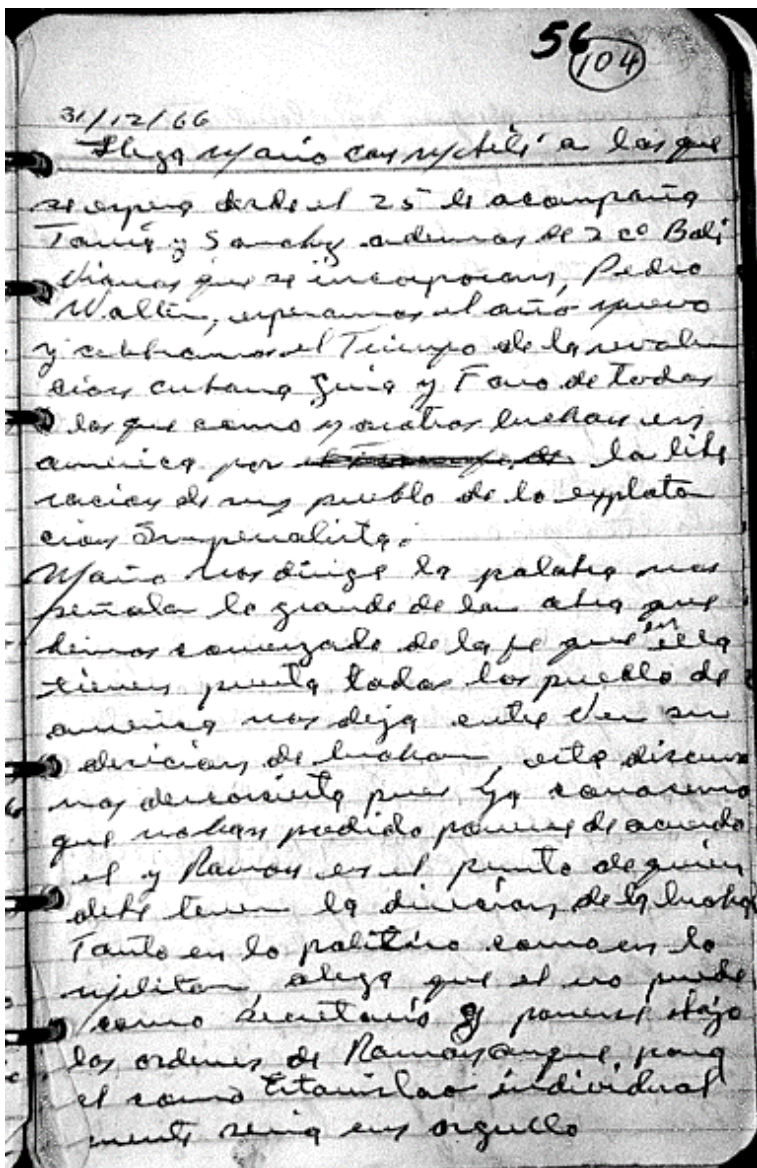 56
104
31/12/66
Llega Mario con Ñ
se espera desde el 25 le acompaña
Tania y Sanchez ademas de 2 co Boli
vianos que se incorporan, Pedro
Walter, esperamos el año nuevo
y celebramos el Triunfo de la revolu
cion cubana Guia y Faro de todos
los que como nosotros luchan en
america por la libe
racion de sus pueblo de la explota
cion Imperialista.
Mario nos dirige la palabra nos
señala lo grande de la obra que
hemos comenzado de la fe que en ella
tienen puesta todos los pueblo de
america nos deja entre ver su
decicion de luchar, este discurso
nos desconcierta pues ya conocemos
que no han podido ponerse de acuerdo
el y Ramon en el punto de quien
debe tener la direccion de la lucha
Tanto en lo politico como en lo
militar, alega que el no puede
como secretario ponerse bajo
las ordenes de Ramon aunque para
el como Estanislao individual
mente seria un orgullo